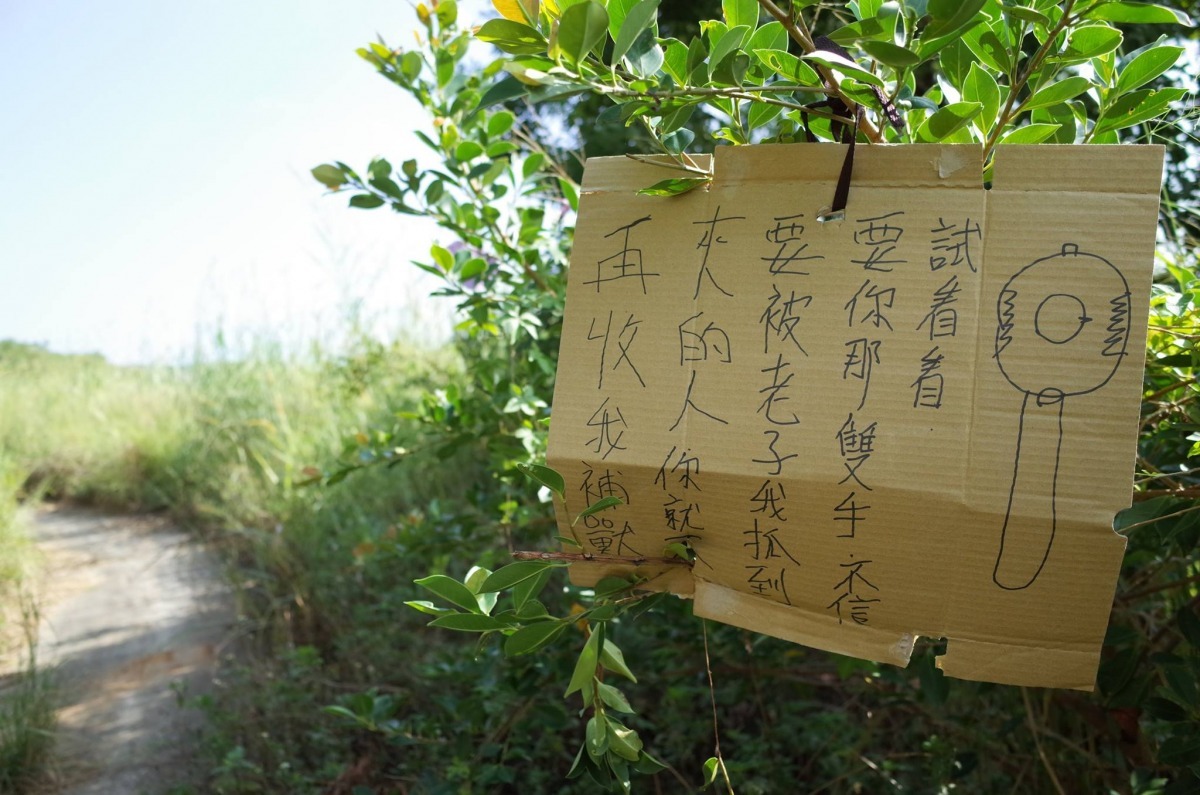 再收我補獸
夾的人你就不
要被老子我抓到
要你那雙手不信
試看看